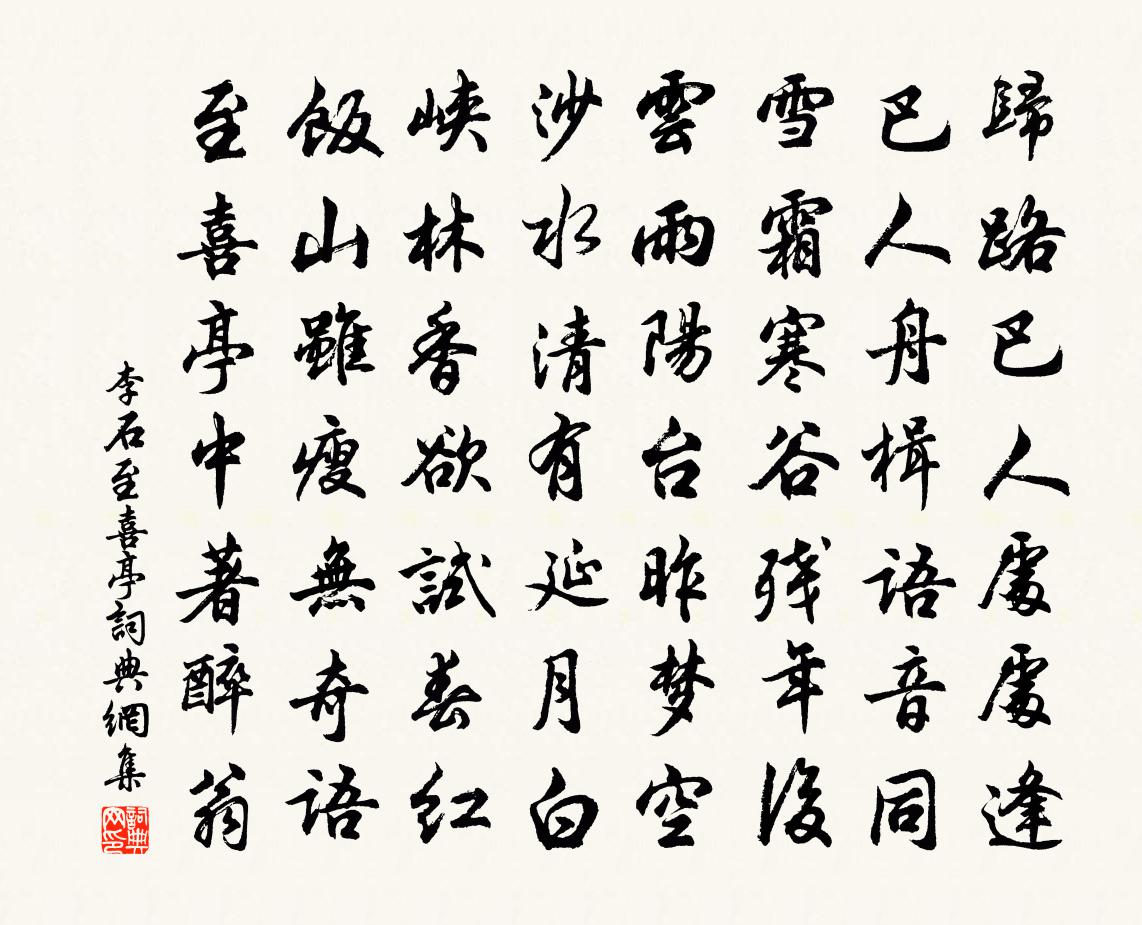 歸路巴人處處逢
巴人舟楫語音同
雪霜寒谷残年後
雲雨陽台昨梦空
沙水清有延月白
峽林香欲試春紅
飯山雖瘦無奇語
至喜亭中著醉翁
李石至喜亭詞典網集
詞典网印